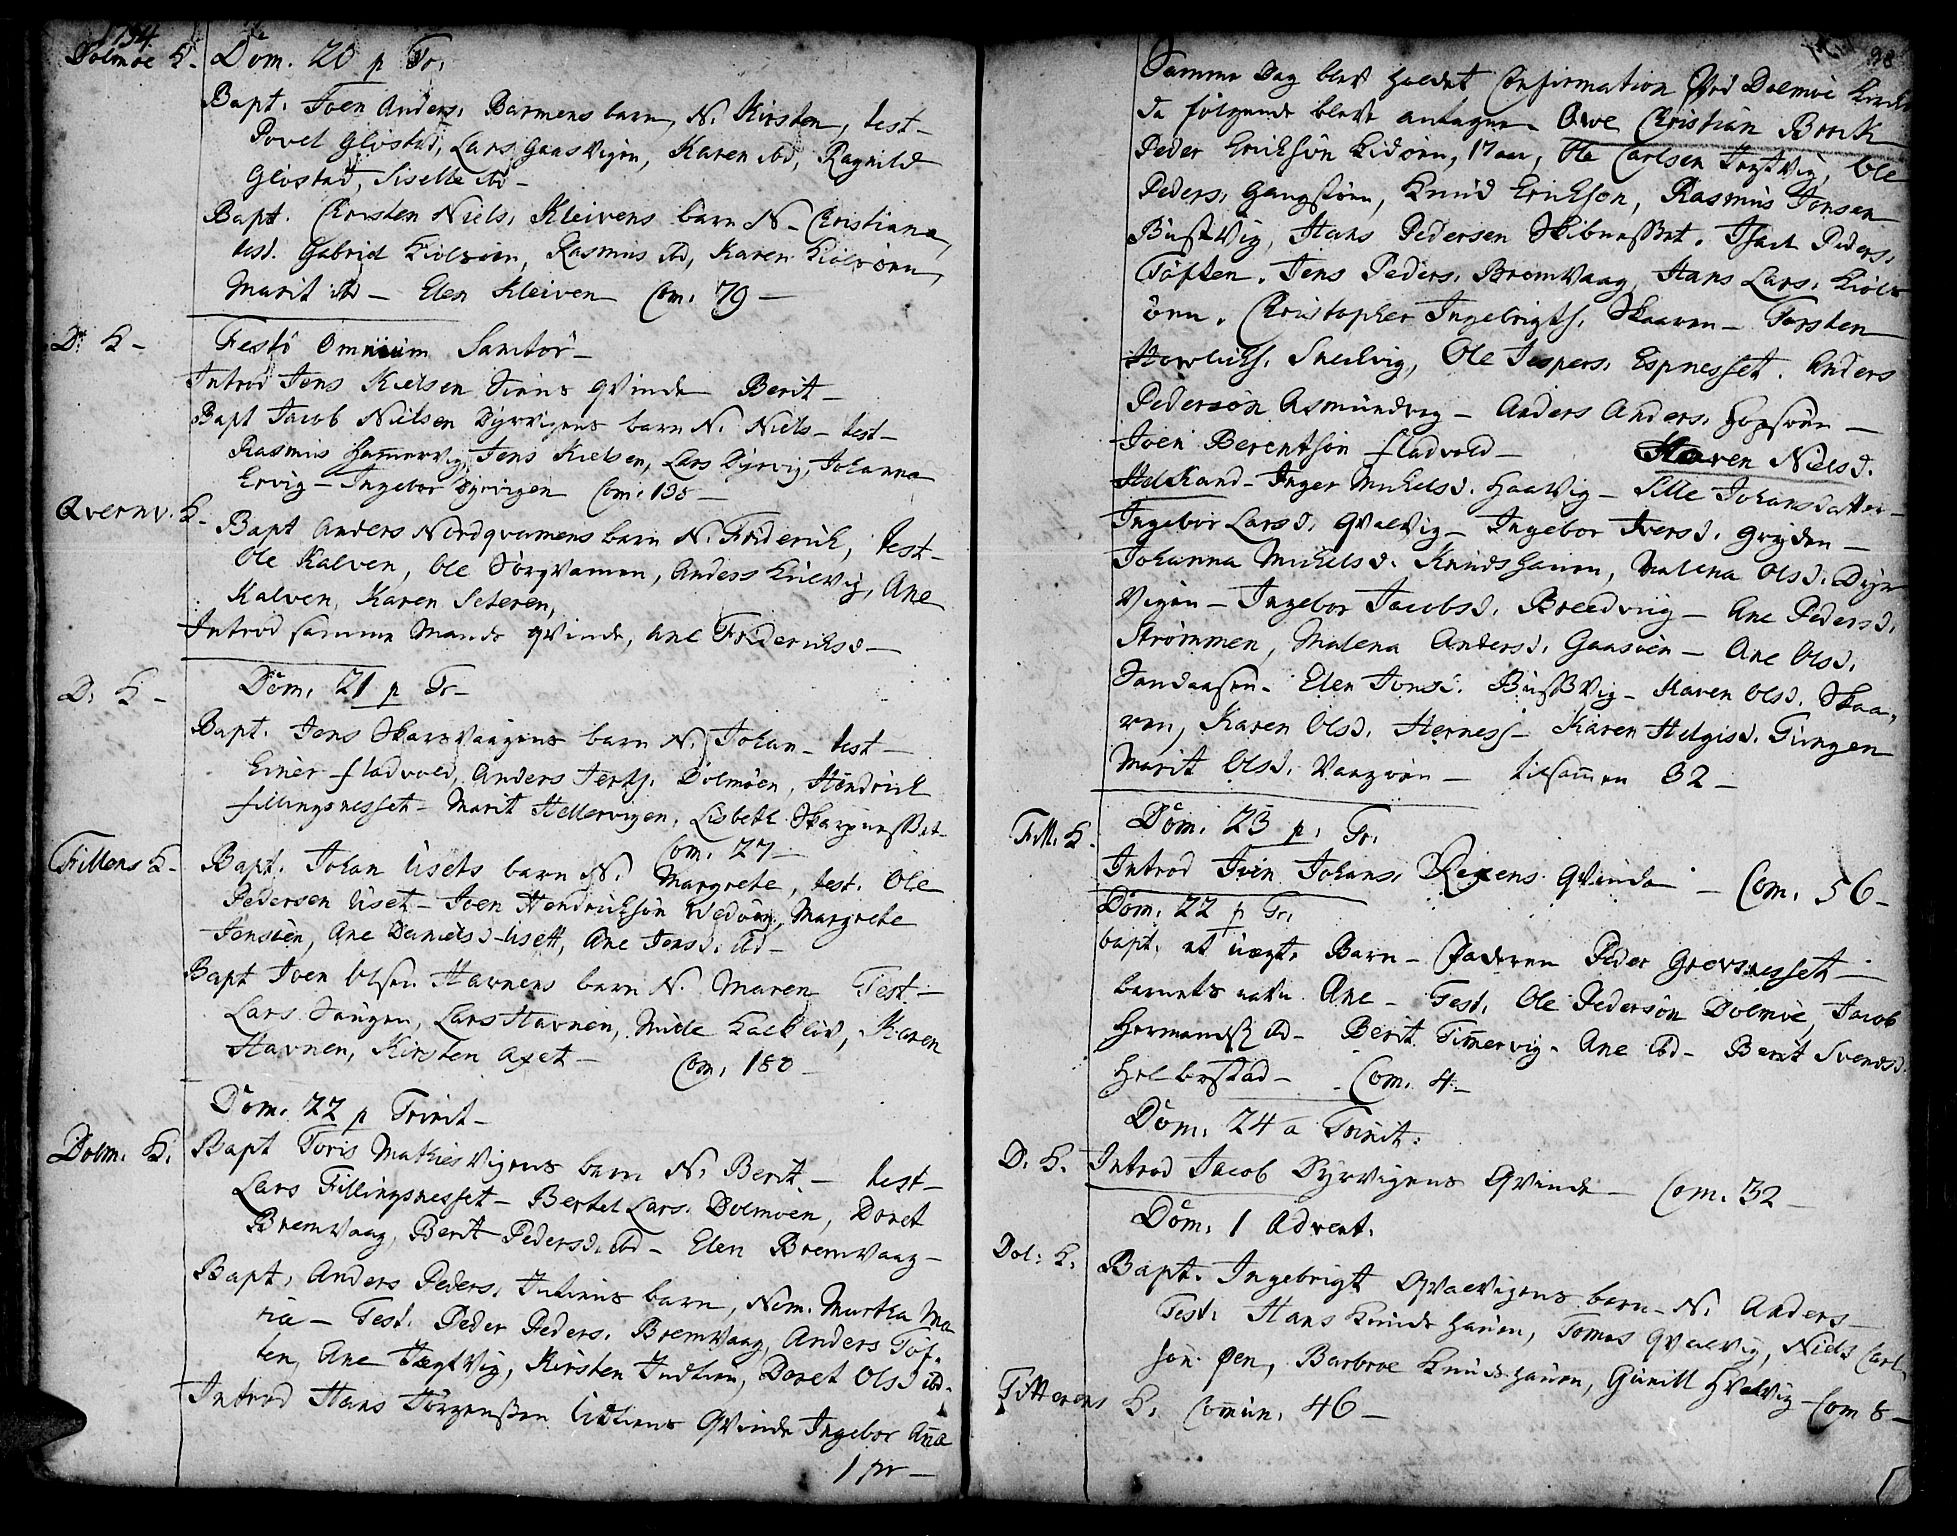 1754.
Dolmøe K. Dom. 20 p Tr.
Bapt. Joen Anders. Barmens barn, N. Kirsten, test-
Povel Gløstad, Lars Gaasvigen, Karen ibd, Ragnild
Gløstad, Siselle ibd-
Bapt. Christen Niels. Kleivens barn N- Christiana,
test. Gabriel Kiølsøen, Rasmus ibd, Karen Kiølsøen,
Marit ibd - Elen Kleiven Com. 79-
D. K- Festo Omnium Sanctor-
Introd Jens Nielsen qvinde Berit-
Bapt Jacob Nielsen Dyrvigens barn N. Niels- test-
Rasmus Hammervig, Jens Nielsen, Lars Dyrvig, Johanna
Ervig- Ingebor Dyrvigen Com. 135-
Qvernv. K. Bapt Anders Nordqvamens barn N. Friderich, test-
Ole Kalven, Ole Sørqvamen, Anders, Ane
Kalven, Karen Seteren,
Introd samme Mands qvinde, Ane Friderichsd-
D. K- Dom. 21 p Tr-
Bapt. Jens Skarsvaagens barn N. Johan- test-
Einer fladvold, Anders Dolmøen, Hendrich
fillingsnesset- Marit Hellervigen, Lisbeth Skarpnesset-
Com. 27-
Fillens K- Bapt. Johan Usets barn N. Margrete, test. Ole
Pedersen Uset- Joen Hendrichsøn Vedøen, Margrete
Jensøen, Ane Danielsd Usett, Ane Jensd. ibd-
Bapt Joen Olsen Havnens barn N. Maren Test-
Lars Saugen, Lars Havnen, Karen
Havnen, Kirsten Axet- Com. 180-
Dom. 22 p Trinit-
Dolm. K. Bapt Toris Mathiesvigens barn N. Berit- test-
Lars Fillingsnesset- Bertel Lars. Dolmøen, Doret
Bremvaag, Berit Pedersd. ibd- Elen Bremvaag-
Bapt. Anders Peders. barn, Nom. Martha Ma
ria- Test. Peder Peders. Bremvaag, Anders Tøf-
ten, Ane Jægtvig, Kirsten, Doret Olsd ibd-
Introd Hans Jørgensen Qvinde Ingebor Ana
1 pr-
98
Samme Dag blev holdet Confirmation Ved Dolmøe Kirche
da følgende bleve antagne- Owe Christian Brock
Peder Erichsøn Kidøen, 17 aar, Ole Carlsen Jægtvig, Ole
Peders. Gangstøen, Knud Erichson, Rasmus Jonsen
Bustvig, Hans Pedersen Skibnesset. Isach Peders.
Tøften. Jens Peders. Bromvaag, Hans Lars. Kiøls
øen. Christopher Ingebrigts. Skaaren- Torsten
Ole Jespers. Espnesset. Anders
Pedersøn Asmundvog- Anders Anders. Hopsøen-
Joen Berentsøn fladvold- Maren Nielsd.
Inger Michelsd. Haavig- Sille Johansdatter-
Ingebor Larsd. Qvalvig- Ingebor Iversd. Gryden-
Johanna Michelsd. Knudshauen, Malena Olsd. Dyr
Vigen- Ingebor Jacobsd. Breedvig- Ane Pedersd.
Strømmen, Malena Andersd. Gaasøen- Ane Olsd.
Sandaasen- Elen Jonsd. Bustvig- Maren Olsd. Skaa-
ren, Karen Olsd. Hernes- Karen Helgisd. Tungen
Marit Olsd. Vaagøen- tilsamen 32-
Fill. K. Dom. 23 p. Tr.
Introd Joen Johans. Qvinde - Com. 56-
Dom. 22 p Tr.
bapt. et uægt. Barn- Faderen Peder Grevsnesset-
barnets navn Ane- Test. Ole Pedersøn Dolmøe, Jacob
Hermands ibd- Berit Timervig- Ane ibd- Berit Svendsd.
Helbostad- Com. 4-
Dom. 24 a Trinit:
D. K. Introd Jacob Dyrvigens Qvinde- Com. 32-
Dom. 1 Advent.
Dol. K. Bapt. Ingebrigt Qvalvigens barn- N. Anders-
Test. Hans Knudshauen, Tomes Qvalvig, Niels Carl
søn Øen, Barbroe Knudshauen, Gunill Hvalvig- Com 8-
Titterens K. Comun. 46-